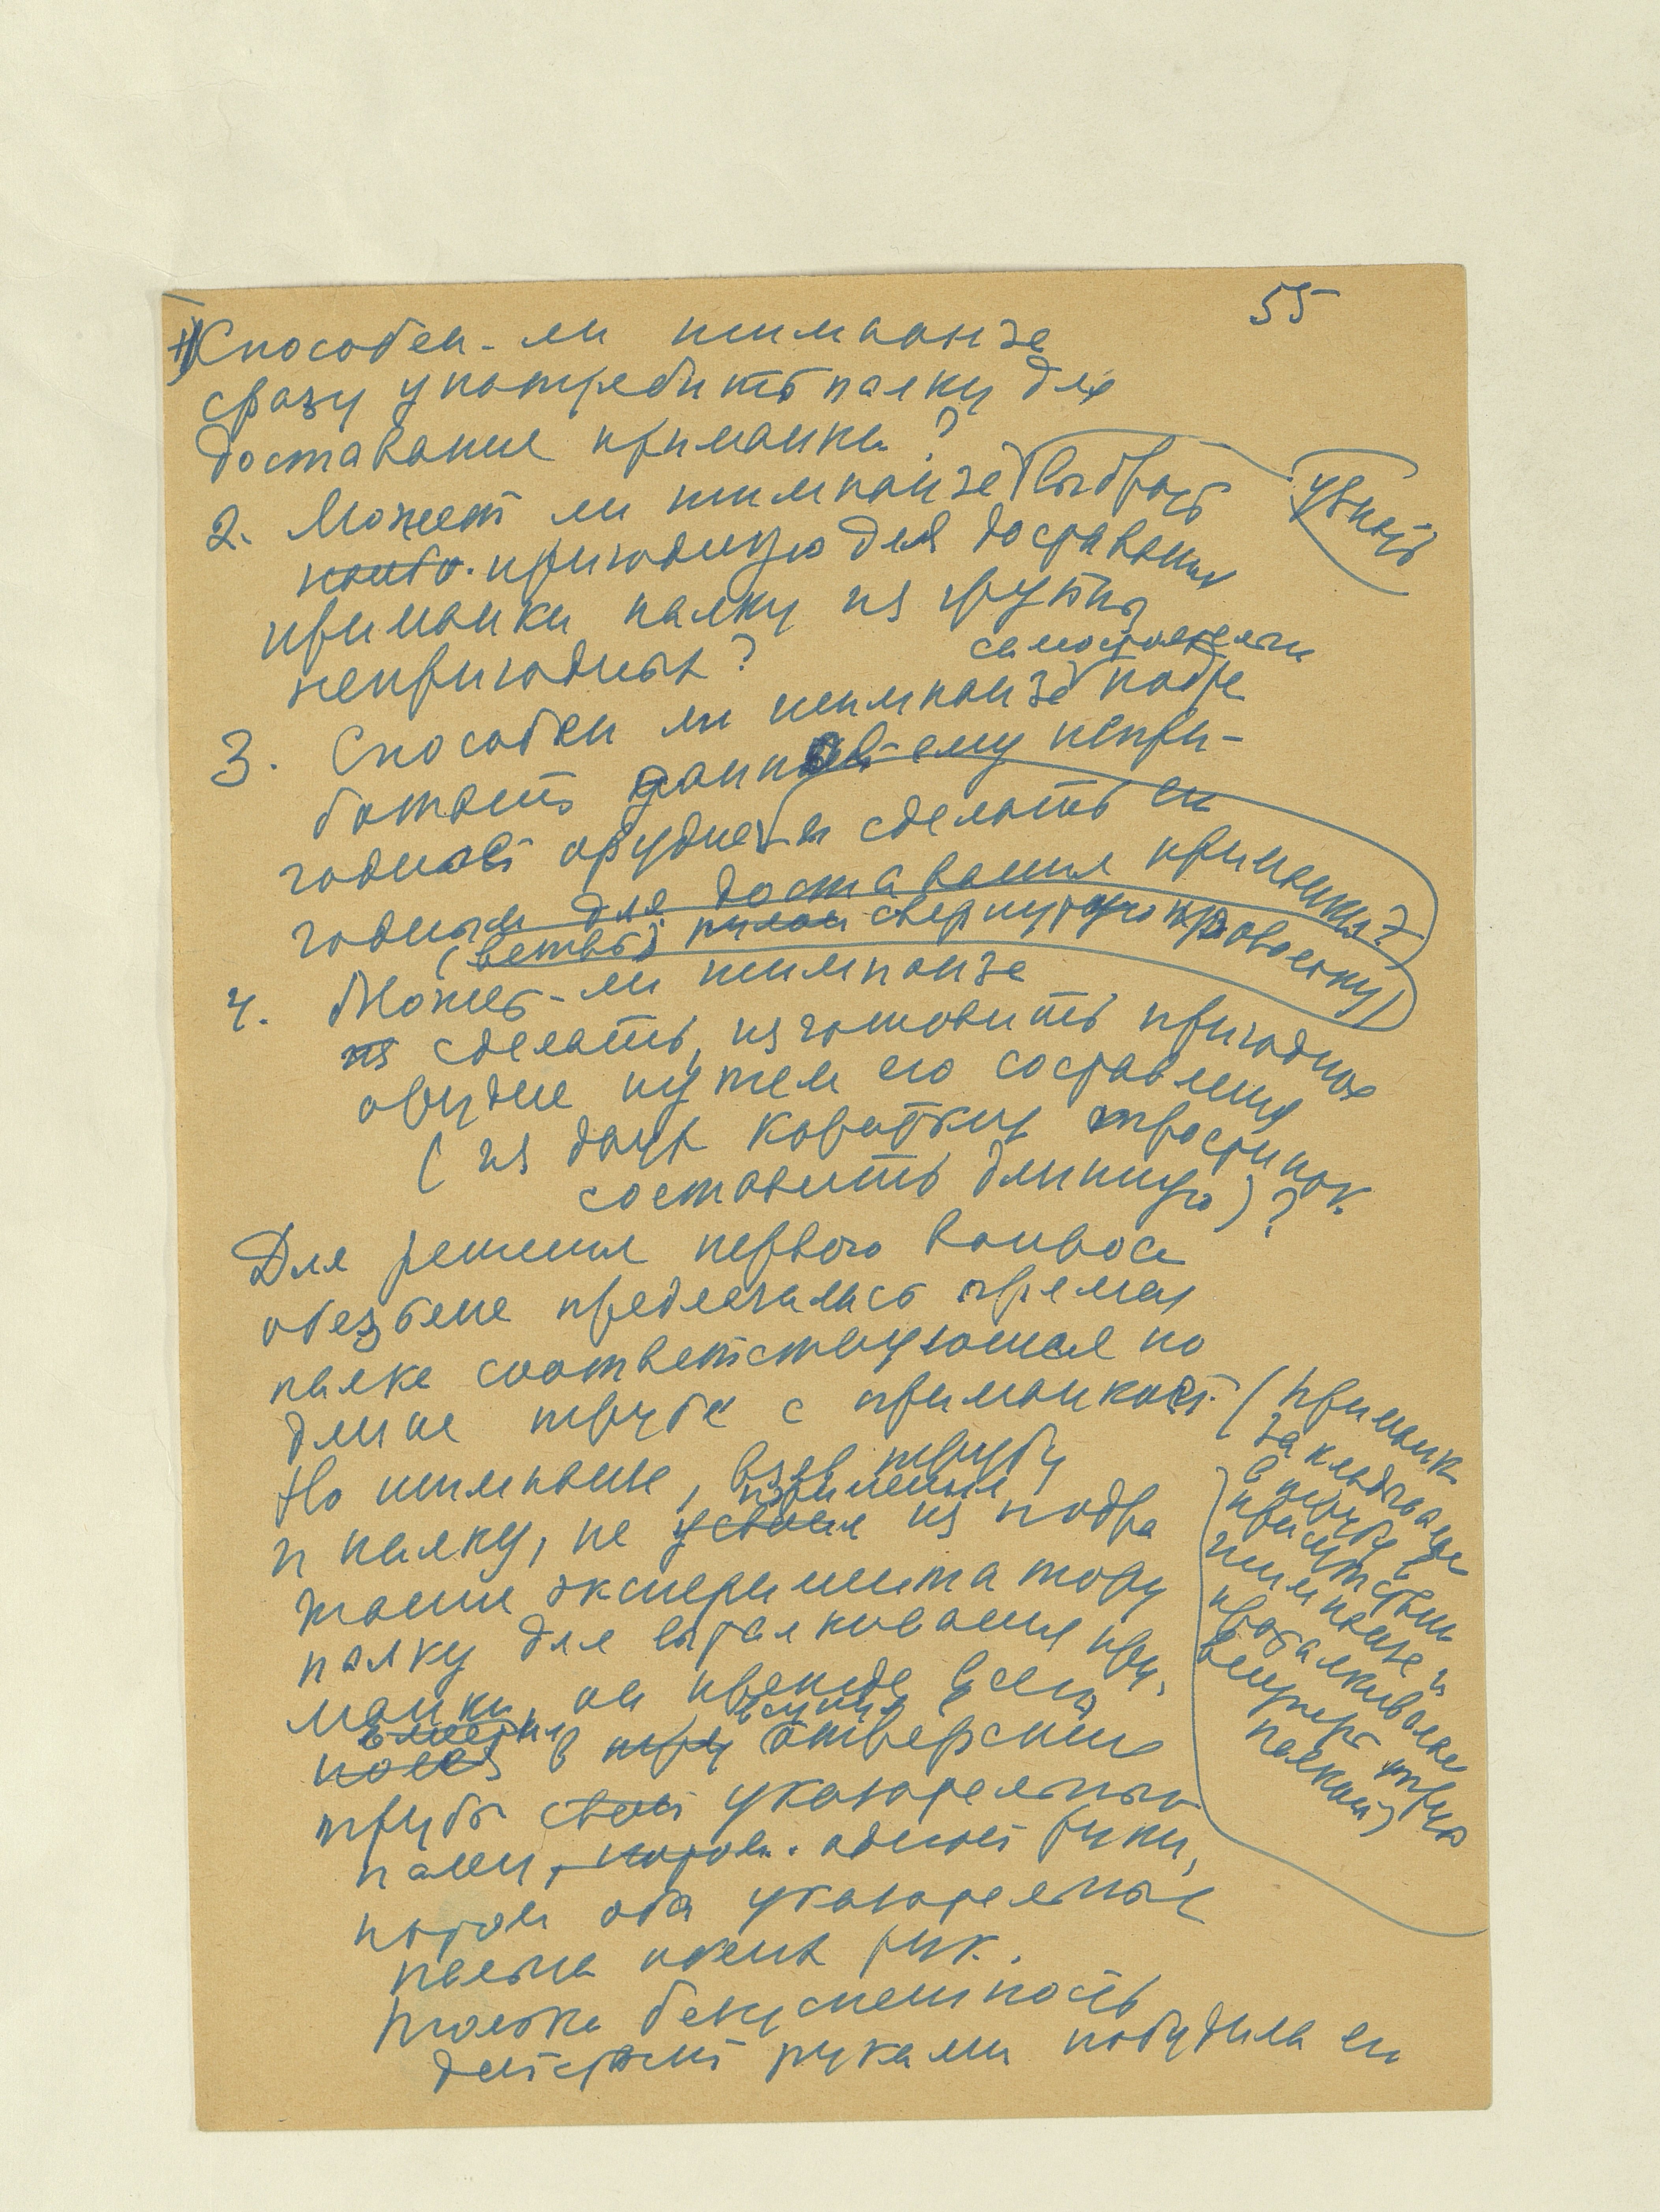 55
1) Способен-ли шимпанзе
сразу употребить палку для
доставания приманки?
2. Может ли шимпанзе выбрать
узнать
пригодную для доставания
приманки палку из группы
непригодных?
самостоятельно
3. Способен ли шимпанзе подра
ботать данное ему непри-
годное орудие и сделать его
годным для доставания приманки?
(ветвь) свернутую проволоку)
4. Может-ли шимпанзе
из сделать, изготовить пригодное
орудие путем его составления
(из двух коротких тростинок
составить длинную)?
Для решения первого вопроса
обезьяне предлагалась прямая
палка соответствующая по
длине трубе с приманкой.
(приманка
закладывалась
в трубу в
присутствии
шимпанзе и
проталкивалась
внутрь трубы
палкой)
Но шимпанзе, взяв трубу
применил
и палку, не усвоил из подра
жания экспериментатору
палку для выталкивания при-
манки, он прежде всего
всунул
в отверстие
трубы свой указательный
палец, потом. одной руки,
потом оба указательные
пальца обеих рук.
Только безуспешность
действий руками побудила его